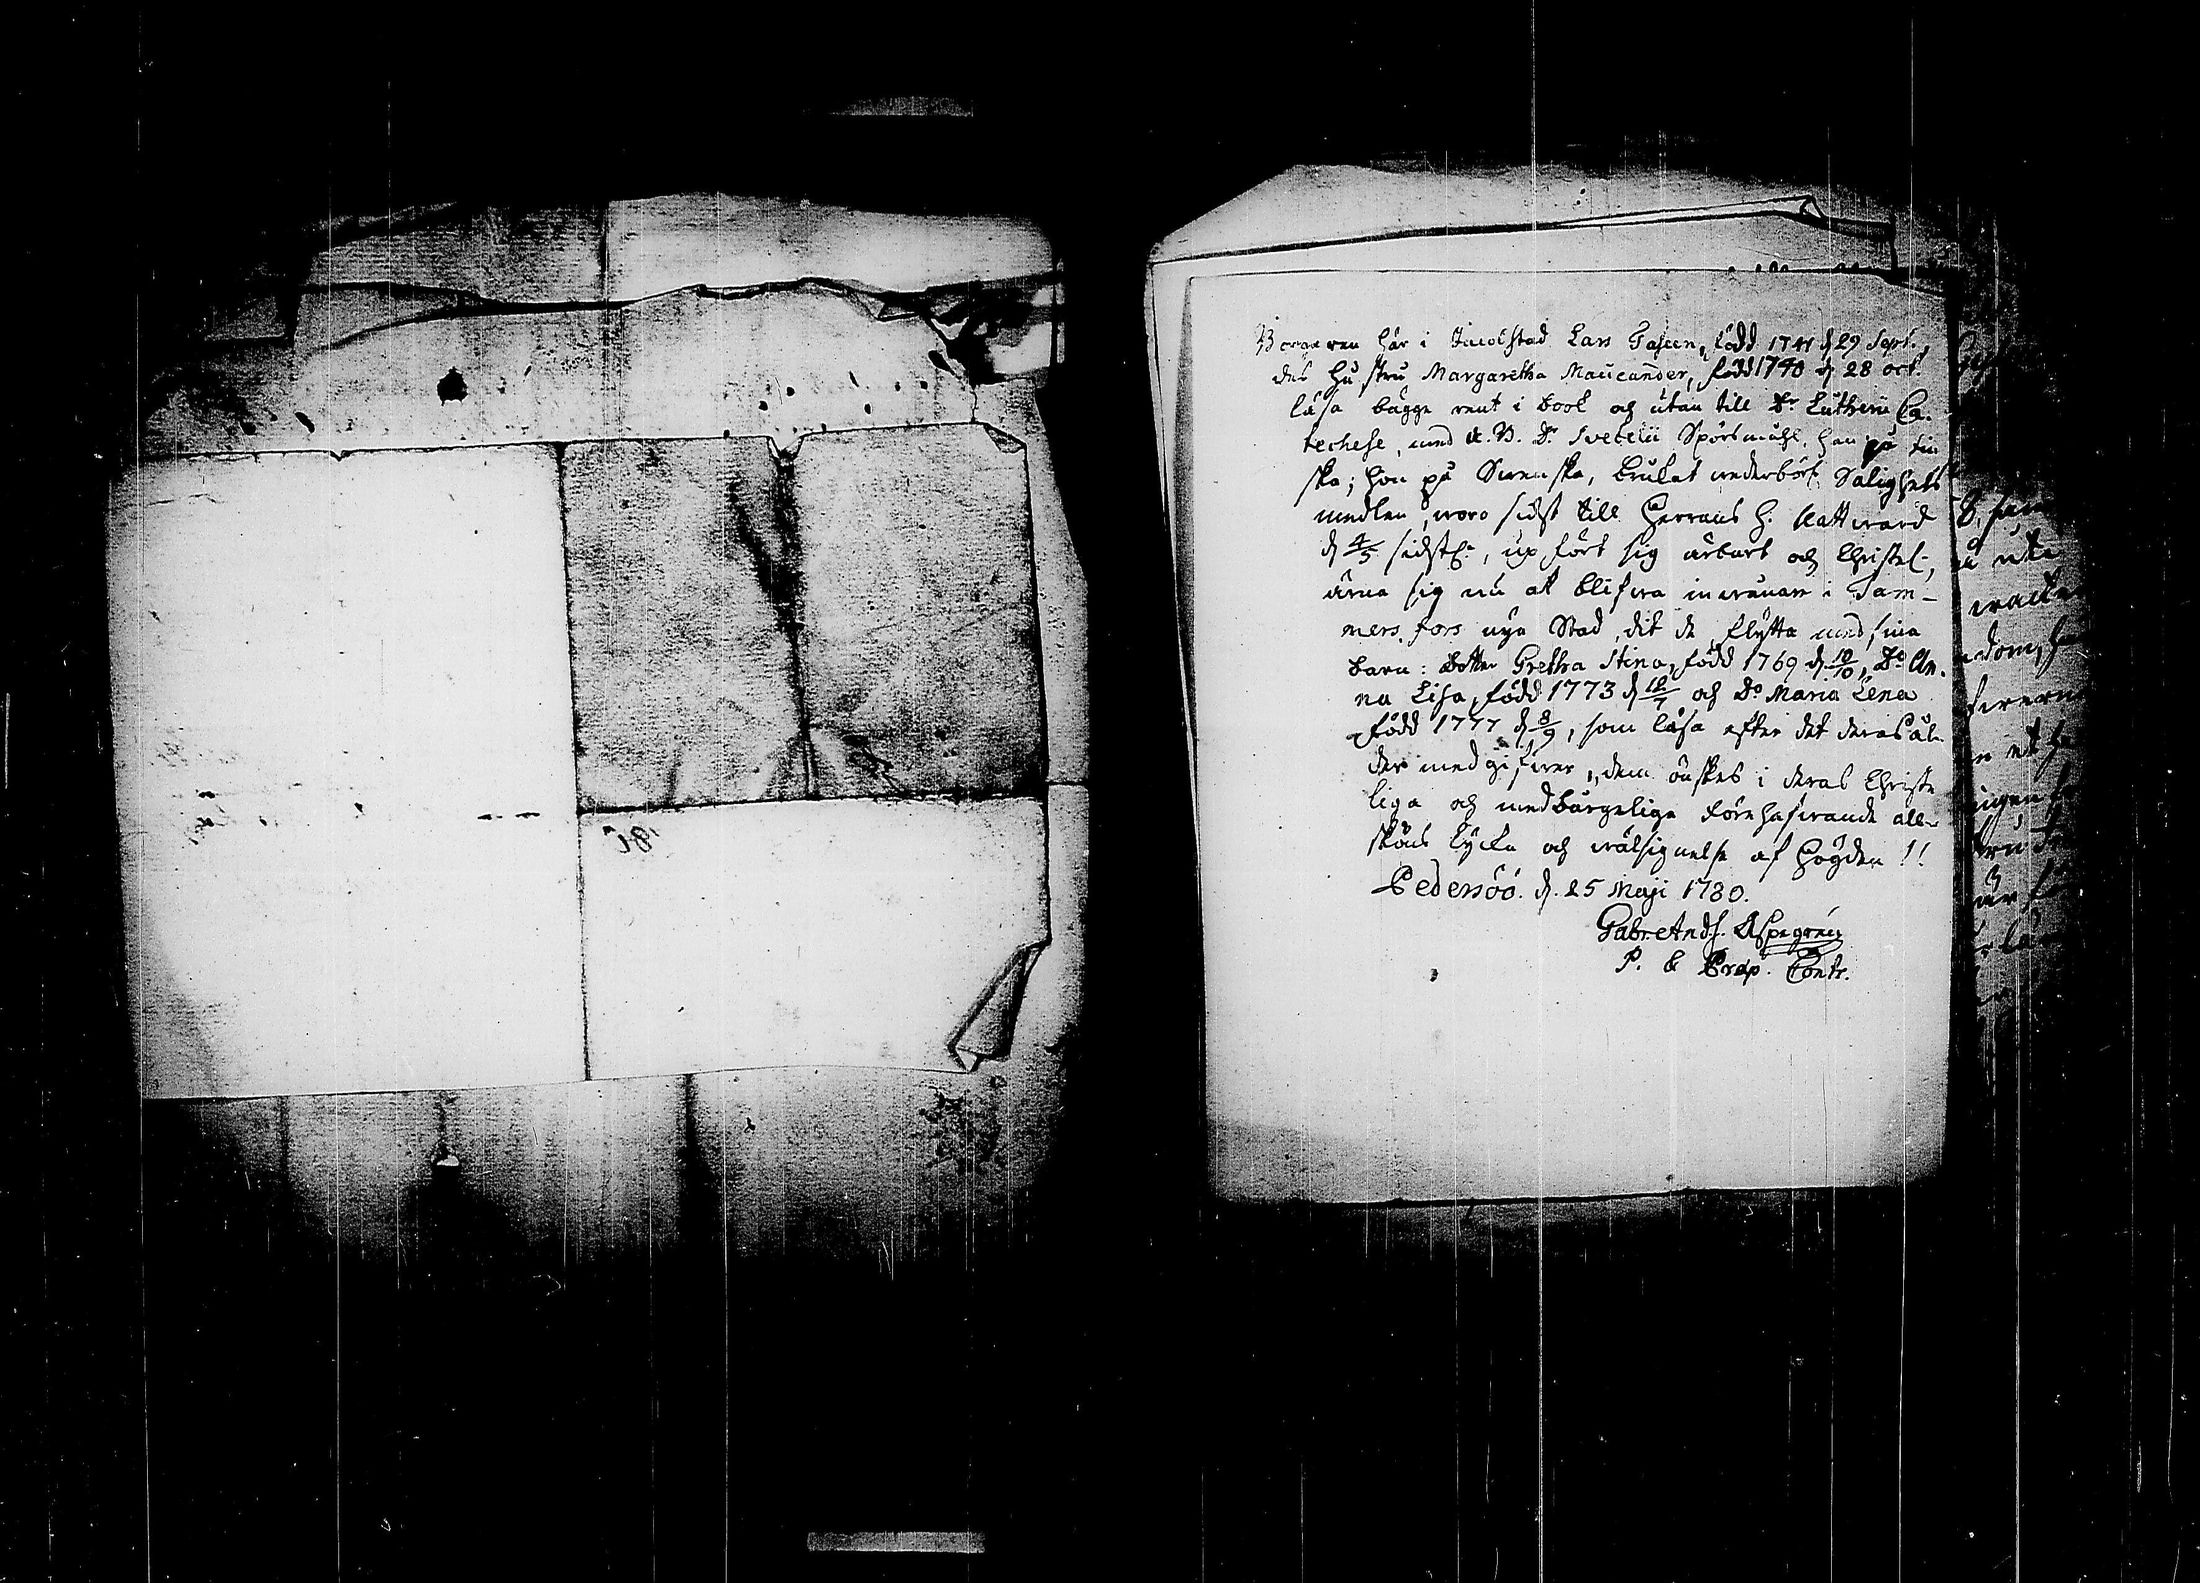 Borgaren här i Jacobstad Lars Fasen, född 1741 d 29 Sept.,
des hustru Margaretha Maucander, född 1740 d 28 oct.
läsa bägge rent i book och utan till Dr Lutheri Ca-
techese, med A. B. Dr Svebelii Spörsmåhl, han på fin
ska; hon på Svenska, brukat vederbörl. Salighets
medlen, woro sidst till Herrans H. Nattward
d 4/5 sidstl., upfört sig ärbart och Christel.,
ärna sig nu at blifwa inwånare i Tam-
mersfors nya Stad, dit de flytta med sina
barn: Dotter Gretha Stina, född 1769 d 10/10, Do An-
na Lisa, född 1773 d 18/7 och Do Maria Lena
född 1777 d 8/9, som läsa efter det deras ål-
der medgifwer, dem önskes i deras Christe
liga och medborgeliga förehafwande all-
sköns lycka och wälsignelse af högden!!
Pedersöö. d. 25 Maji 1780.
Gabr. And:s. Aspegren
P. & Præp. Contr.